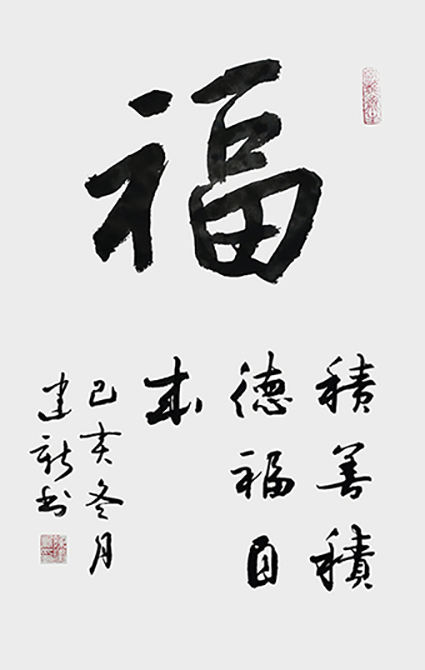 福
積善積
德福自
來
己亥冬月
建新书